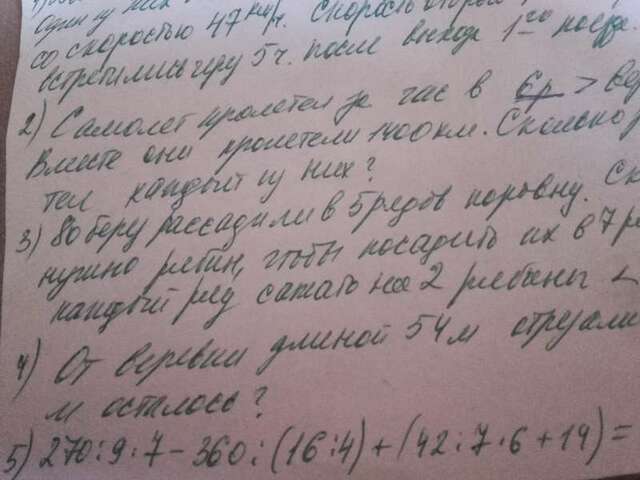 один из них
со скоростью 47 км/ч. Скорость второй
встретились через 5 ч. после выхода 1-го поезда.
2) Самолет пролетел за час в 6 р >
Вместе они пролетели 1400 км. Сколько
тел каждый из них?
3) 80 берёз рассадили в 5 рядов поровну.
нужно рябин, чтобы посадить их в 7
каждый ряд сажать на 2 рябины <
4) От веревки длиной 54 м отрезали
м осталось?
5) 270:9·7-360:(16:4)+(42:7·6+14)=